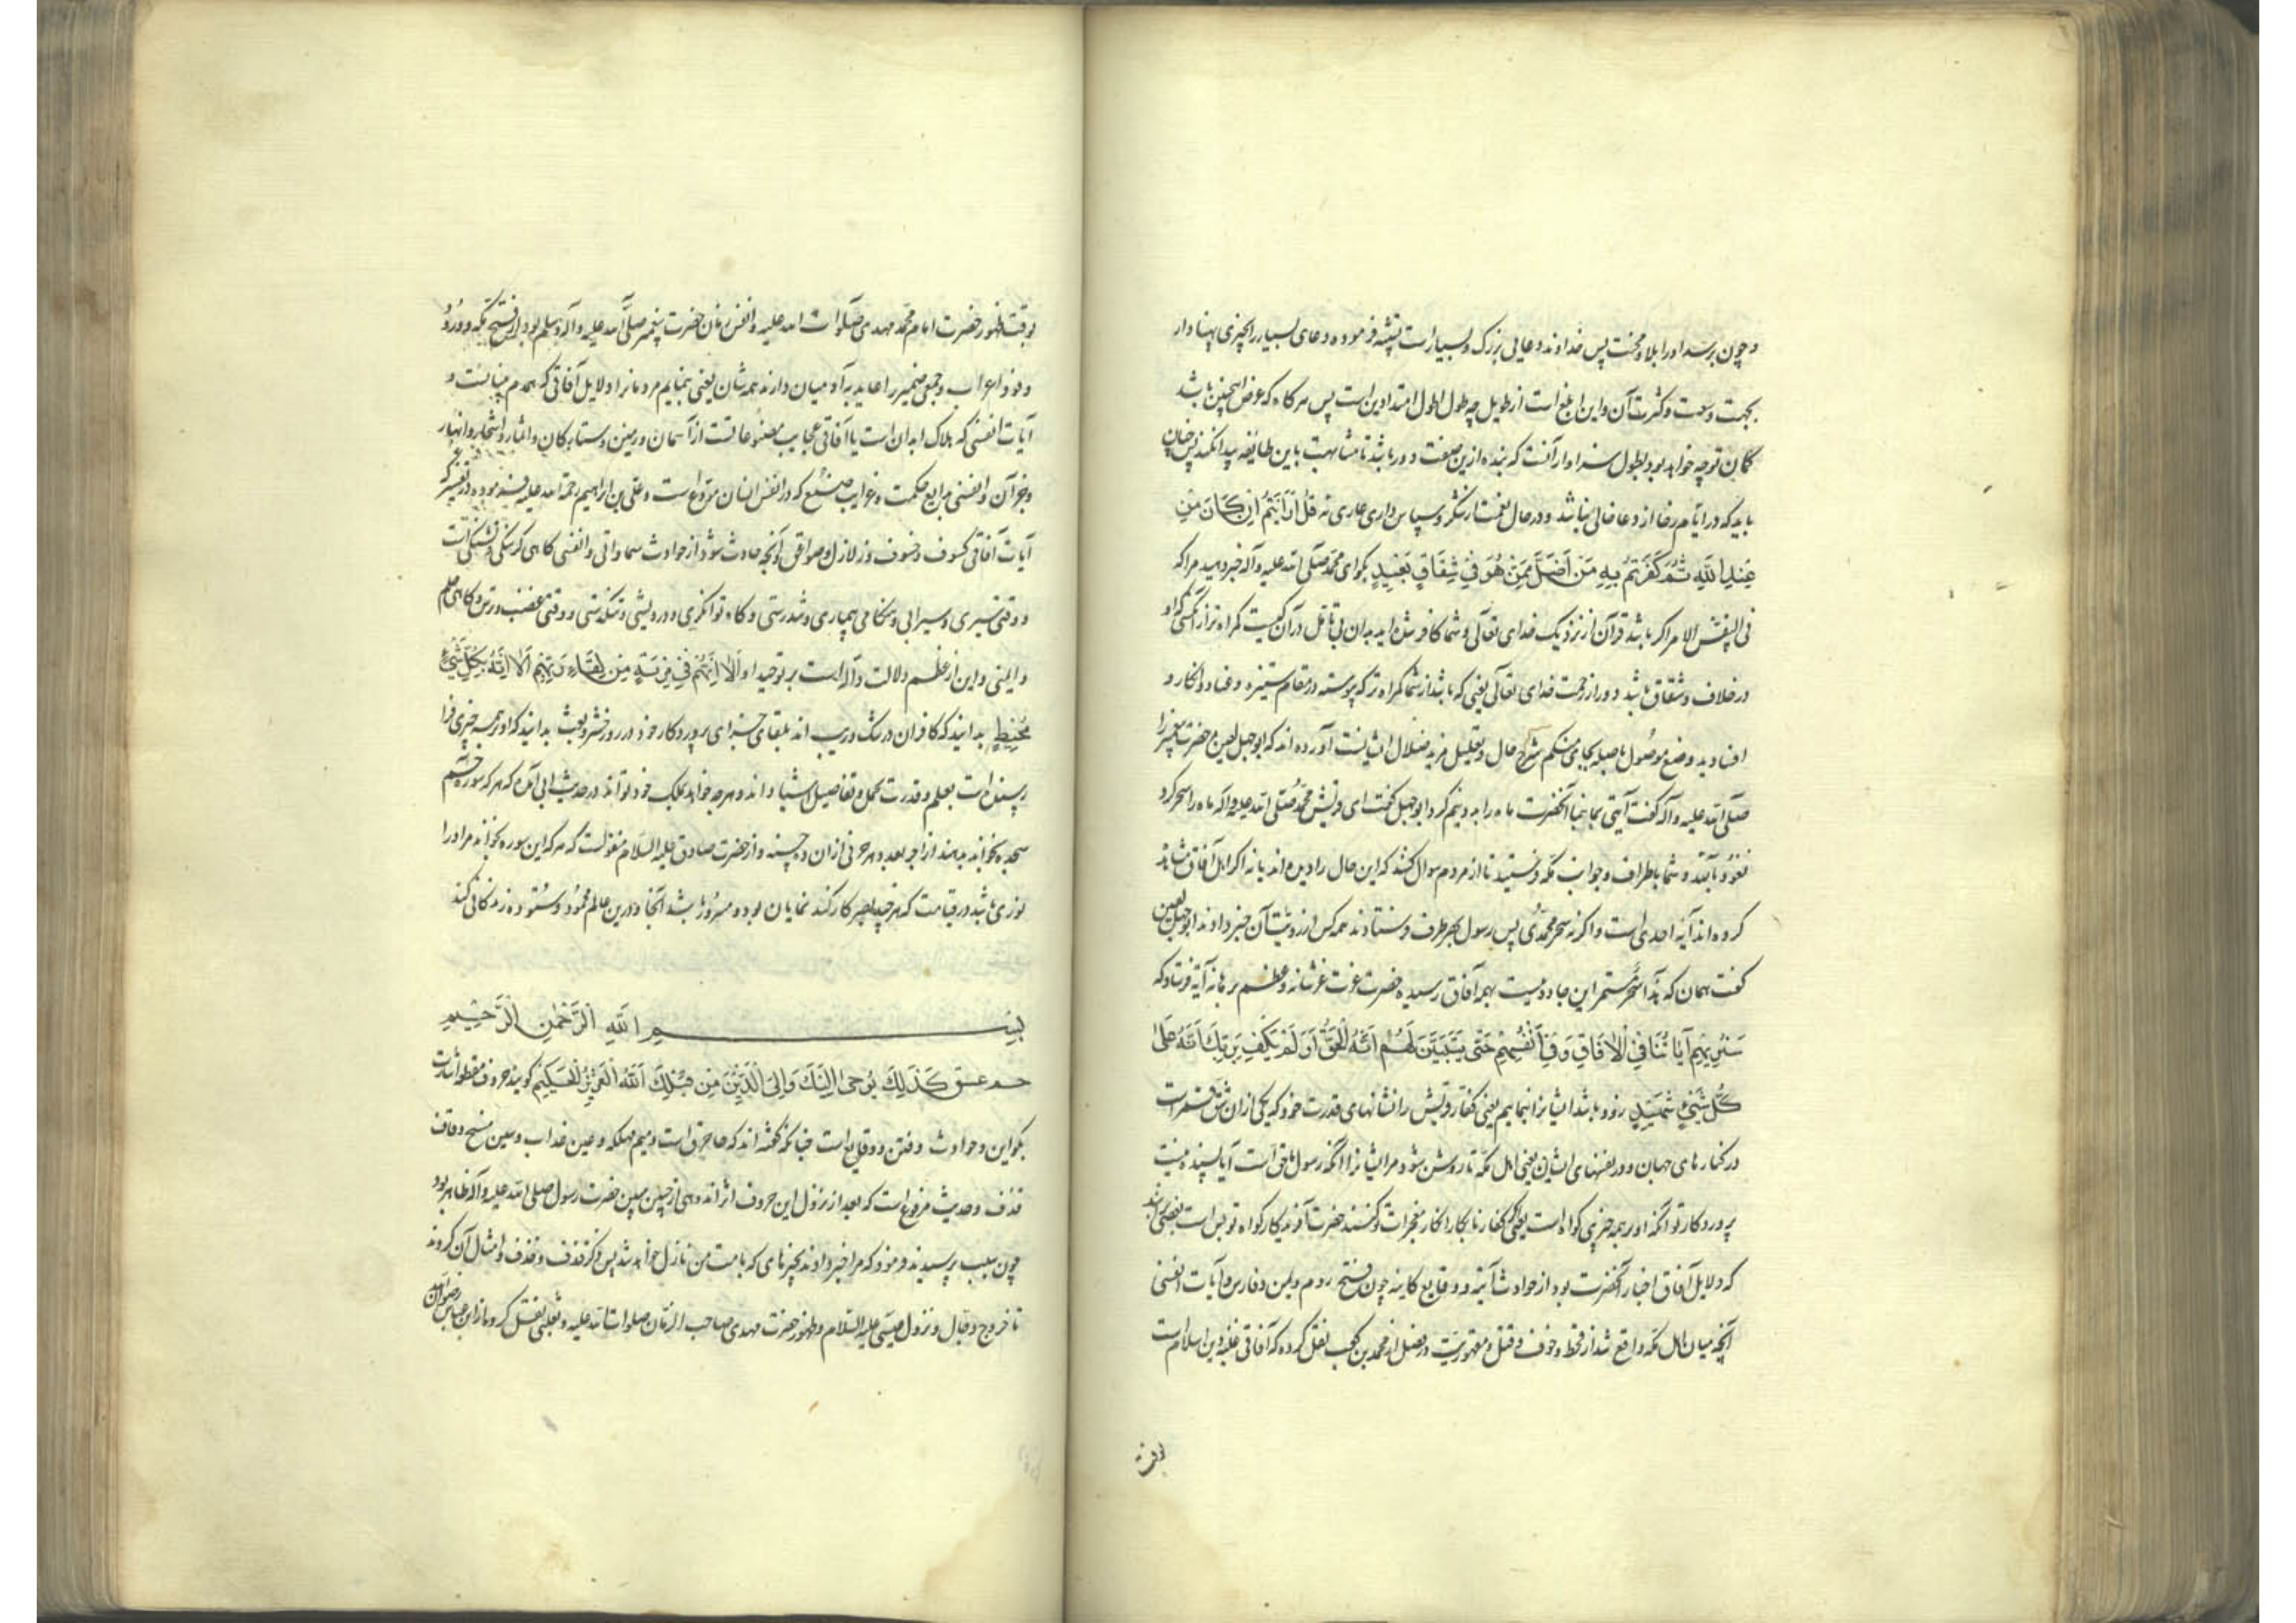 و چون برسد او را بلا و محنت پس خداوند دعایی بزرگ و بسیار است تشبیه فرموده دعای بسیار را بچیزی پهنا دار
بجهت وسعت و کثرت آن و این ابلغ است از طویل چه طول اطول امتدادین است پس هر گاه که عرض اینچنین باشد
گمان توچه خواهد بود بطول سزاوار آنست که بنده ازین صفت دور باشد تا مشابهت باین طائفه پیدا نکند پس چنان
باید که در ایام رخا از دعا خالی نباشد و در حال نعمت از شکر و سپاس داری عاری نه قُلْ أَرَأَيْتُمْ إِنْ كَانَ مِنْ
عِنْدِ اللَّهِ ثُمَّ كَفَرْتُمْ بِهِ مَنْ أَضَلُّ مِمَّنْ هُوَ فِي شِقَاقٍ بَعِيدٍ بگو ای محمد صلی الله علیه وآله خبر دهید مرا که
فی النفس الامر اگر باشد قرآن از نزدیک خدای تعالی و شما کافر شده اید بدان بی تامل در آن کیست گمراه تر از آنکسی که او
در خلاف و شقاق باشد دور از رحمت خدای تعالی یعنی که باشد از شما گمراه تر که پیوسته در مقام ستیزه و عناد و انکار و
افتادید وضع موصول با صله بجای منکم شرح حال و تعلیل مزید ضلال ایشانست آورده اند که ابوجهل لعین حضرت پیغمبر را
صلی الله علیه وآله گفت آیتی بما بنما آنحضرت ماه را به دو نیم کرد ابوجهل گفت ای قریش محمد صلی الله علیه وآله ماه را سحر کرد
نعوذ بالله و شما باطراف و جوانب مکه فرستید تا از مردم سوال کنند که این حال را دیده اند یا نه اگر اهل آفاق مشاهده
کرده اند آیه احدی است و اگر نه سحر محمدی پس رسول بهر طرف فرستادند همه کس از رویت آن خبر دادند ابوجهل لعین
گفت همان که هذا سحر مستمر این جادوییست بهمه آفاق رسیده حضرت عزت عز شانه و عظم برهانه آیه فرستاد که
سَنُرِيهِمْ آيَاتِنَا فِي الْآفَاقِ وَفِي أَنْفُسِهِمْ حَتَّى يَتَبَيَّنَ لَهُمْ أَنَّهُ الْحَقُّ أَوَلَمْ يَكْفِ بِرَبِّكَ أَنَّهُ عَلَى
كُلِّ شَيْءٍ شَهِيدٌ زود باشد ایشانرا بنماییم یعنی کفار قریش را نشانهای قدرت خود که یکی از ان شق قمر است
در کنارهای جهان و در نفسهای ایشان یعنی اهل مکه تا روشن شود مر ایشانرا آنکه رسول ما حق است آیا بسنده نیست
پروردکار تو آنکه او بر همه چیزی کواه است یعنی اگر کفار نابکار انکار معجزات تو کنند حضرت آفریدکار کواه تو بس است بعضی برانند
که دلایل آفاق اخبار آنحضرت بود از حوادث آتیه و وقایع کاینه چون فتح روم و یمن و فارس و آیات انفسی
آنچه میان اهل مکه واقع شد از قحط و خوف و قتل و مقهوریت و نقل از محمد بن کعب نقل کرده که آفاقی غلبه دین اسلام است
بوقت
بوقت ظهور حضرت امام محمد مهدی صلوات الله علیه و انفس زمان حضرت پیغمبر صلی الله علیه وآله وسلم بود از فتح مکه و ورود
وفود اعراب و جمعی ضمیر را عاید به آدمیان دارند همه شان یعنی بنمایم مردمانرا دلایل آفاقی که هدم بنیانست و
آیات انفسی که هلاک ابدان است یا آفاقی عجایب مصنوعاتست از آسمان و زمین و ستارکان و اثمار و اشجار و انهار
و جز آن و انفسی بدایع حکمت و غرایب صنع که در انفس انسان مودع است و علی بن ابراهیم رحمة الله علیه فرموده در تفسیر که
آیات آفاقی کسوف و خسوف و زلازل و صواعق و آنچه حادث شود از حوادث سماواتی و انفسی کاهی کرسنکی و تشنکی است
و وقتی سیری و سیرابی و هنکامی بیماری و تندرستی و کاه توانکری و درویشی و تنکدستی و وقتی غضب و ترس و کاهی حلم
و ایمنی و این از عظم دلالت و ادله است بر توحید او أَلَا إِنَّهُمْ فِي مِرْيَةٍ مِنْ لِقَاءِ رَبِّهِمْ أَلَا إِنَّهُ بِكُلِّ شَيْءٍ
مُحِيطٌ بدانید که کافران در شک و ریب اند بلقای جزای پروردکار خود در روز نشر و بعث بدانید که او بهمه چیزی فرا
رسنده است بعلم و قدرت مجمل و تفاصیل اشیا داند و هر چه خواهد بملک خود تواند در حدیث ابی آمده که هر که سوره حم
سجده بخواند بدهند از اجر بعدد هر حرفی از ان ده حسنه و از حضرت صادق علیه السلام منقولست که هر که این سوره بخواند مر او را
نوری باشد در قیامت که هر چند بصر کار کند نمایان بود و مسرور باشد آنجا و درین عالم محمود و ستوده زندکانی کند
بِسْمِ اللَّهِ الرَّحْمَنِ الرَّحِيمِ
حم عسق كَذَلِكَ يُوحِي إِلَيْكَ وَإِلَى الَّذِينَ مِنْ قَبْلِكَ اللَّهُ الْعَزِيزُ الْحَكِيمُ کویند حروف مقطعه اشارت
بکواین و حوادث و فتن و وقایع است چنانکه کفته اند که حا حرق است و میم مهلکه و عین عذاب و سین مسخ و قاف
قذف و حدیث مرفوع است که بعد از نزول این حروف اثر اندوهی از جبین مبین حضرت رسول صلی الله علیه وآله ظاهر بود
چون سبب پرسیدند فرمود که مرا خبر دادند بچیزهای که بامت من نازل خواهد شد پس ذکر خسف و قذف و امثال آن کردند
تا خروج دجال و نزول عیسی علیه السلام و ظهور حضرت مهدی صاحب الزمان صلوات الله علیه و ثعلبی نقل کرده از ابن عباس رضوان الله